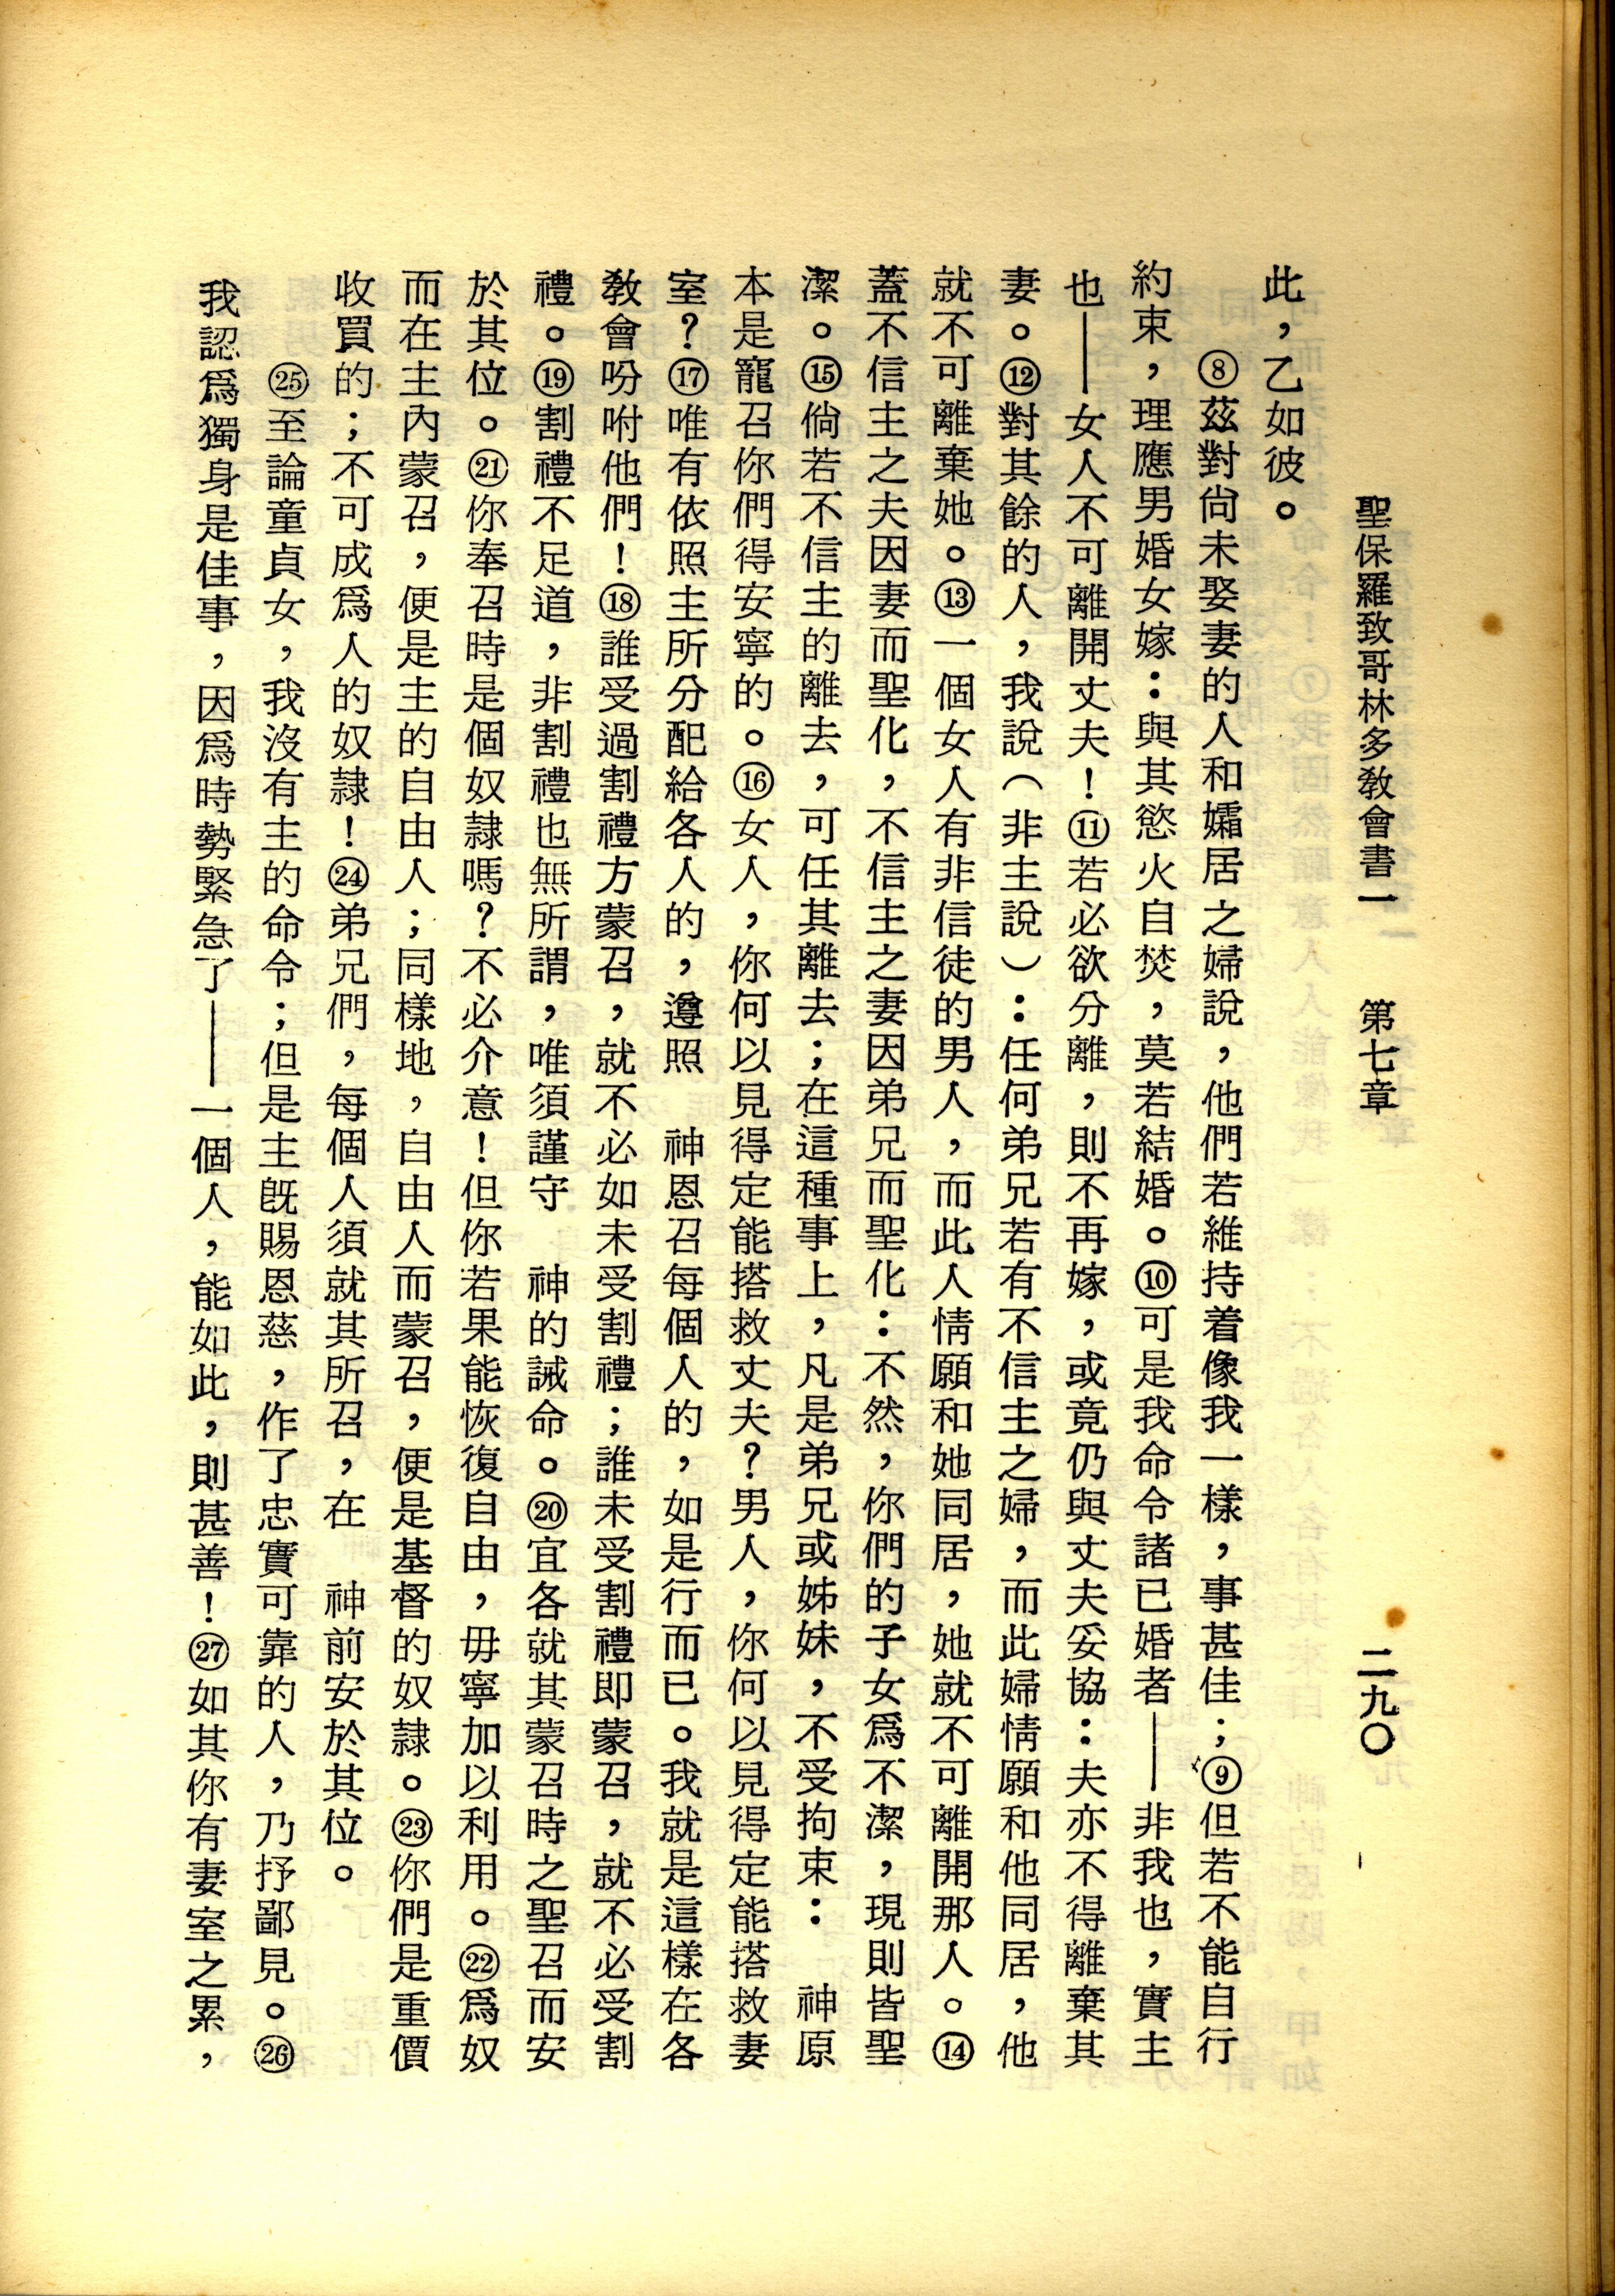 聖保羅致哥林多教會書一　第七章　二九〇
此，乙如彼。
⑧茲對尙未娶妻的人和孀居之婦說，他們若維持着像我一樣，事甚佳；⑨但若不能自行
約束，理應男婚女嫁：與其慾火自焚，莫若結婚。⑩可是我命令諸已婚者——非我也，實主
也——女人不可離開丈夫！⑪若必欲分離，則不再嫁，或竟仍與丈夫妥協：夫亦不得離棄其
妻。⑫對其餘的人，我說（非主說）：任何弟兄若有不信主之婦，而此婦情願和他同居，他
就不可離棄她。⑬一個女人有非信徒的男人，而此人情願和她同居，她就不可離開那人。⑭
蓋不信主之夫因妻而聖化，不信主之妻因弟兄而聖化：不然，你們的子女爲不潔，現則皆聖
潔。⑮倘若不信主的離去，可任其離去；在這種事上，凡是弟兄或姊妹，不受拘束：　神原
本是寵召你們得安寧的。⑯女人，你何以見得定能搭救丈夫？男人，你何以見得定能搭救妻
室？⑰唯有依照主所分配給各人的，遵照　神恩召每個人的，如是行而已。我就是這樣在各
教會吩咐他們！⑱誰受過割禮方蒙召，就不必如未受割禮；誰未受割禮即蒙召，就不必受割
禮。⑲割禮不足道，非割禮也無所謂，唯須謹守　神的誡命。⑳宜各就其蒙召時之聖召而安
於其位。㉑你奉召時是個奴隸嗎？不必介意！但你若果能恢復自由，毋寧加以利用。㉒爲奴
而在主內蒙召，便是主的自由人；同樣地，自由人而蒙召，便是基督的奴隸。㉓你們是重價
收買的；不可成爲人的奴隸！㉔弟兄們，每個人須就其所召，在　神前安於其位。
㉕至論童貞女，我沒有主的命令；但是主旣賜恩慈，作了忠實可靠的人，乃抒鄙見。㉖
我認爲獨身是佳事，因爲時勢緊急了——一個人，能如此，則甚善！㉗如其你有妻室之累，